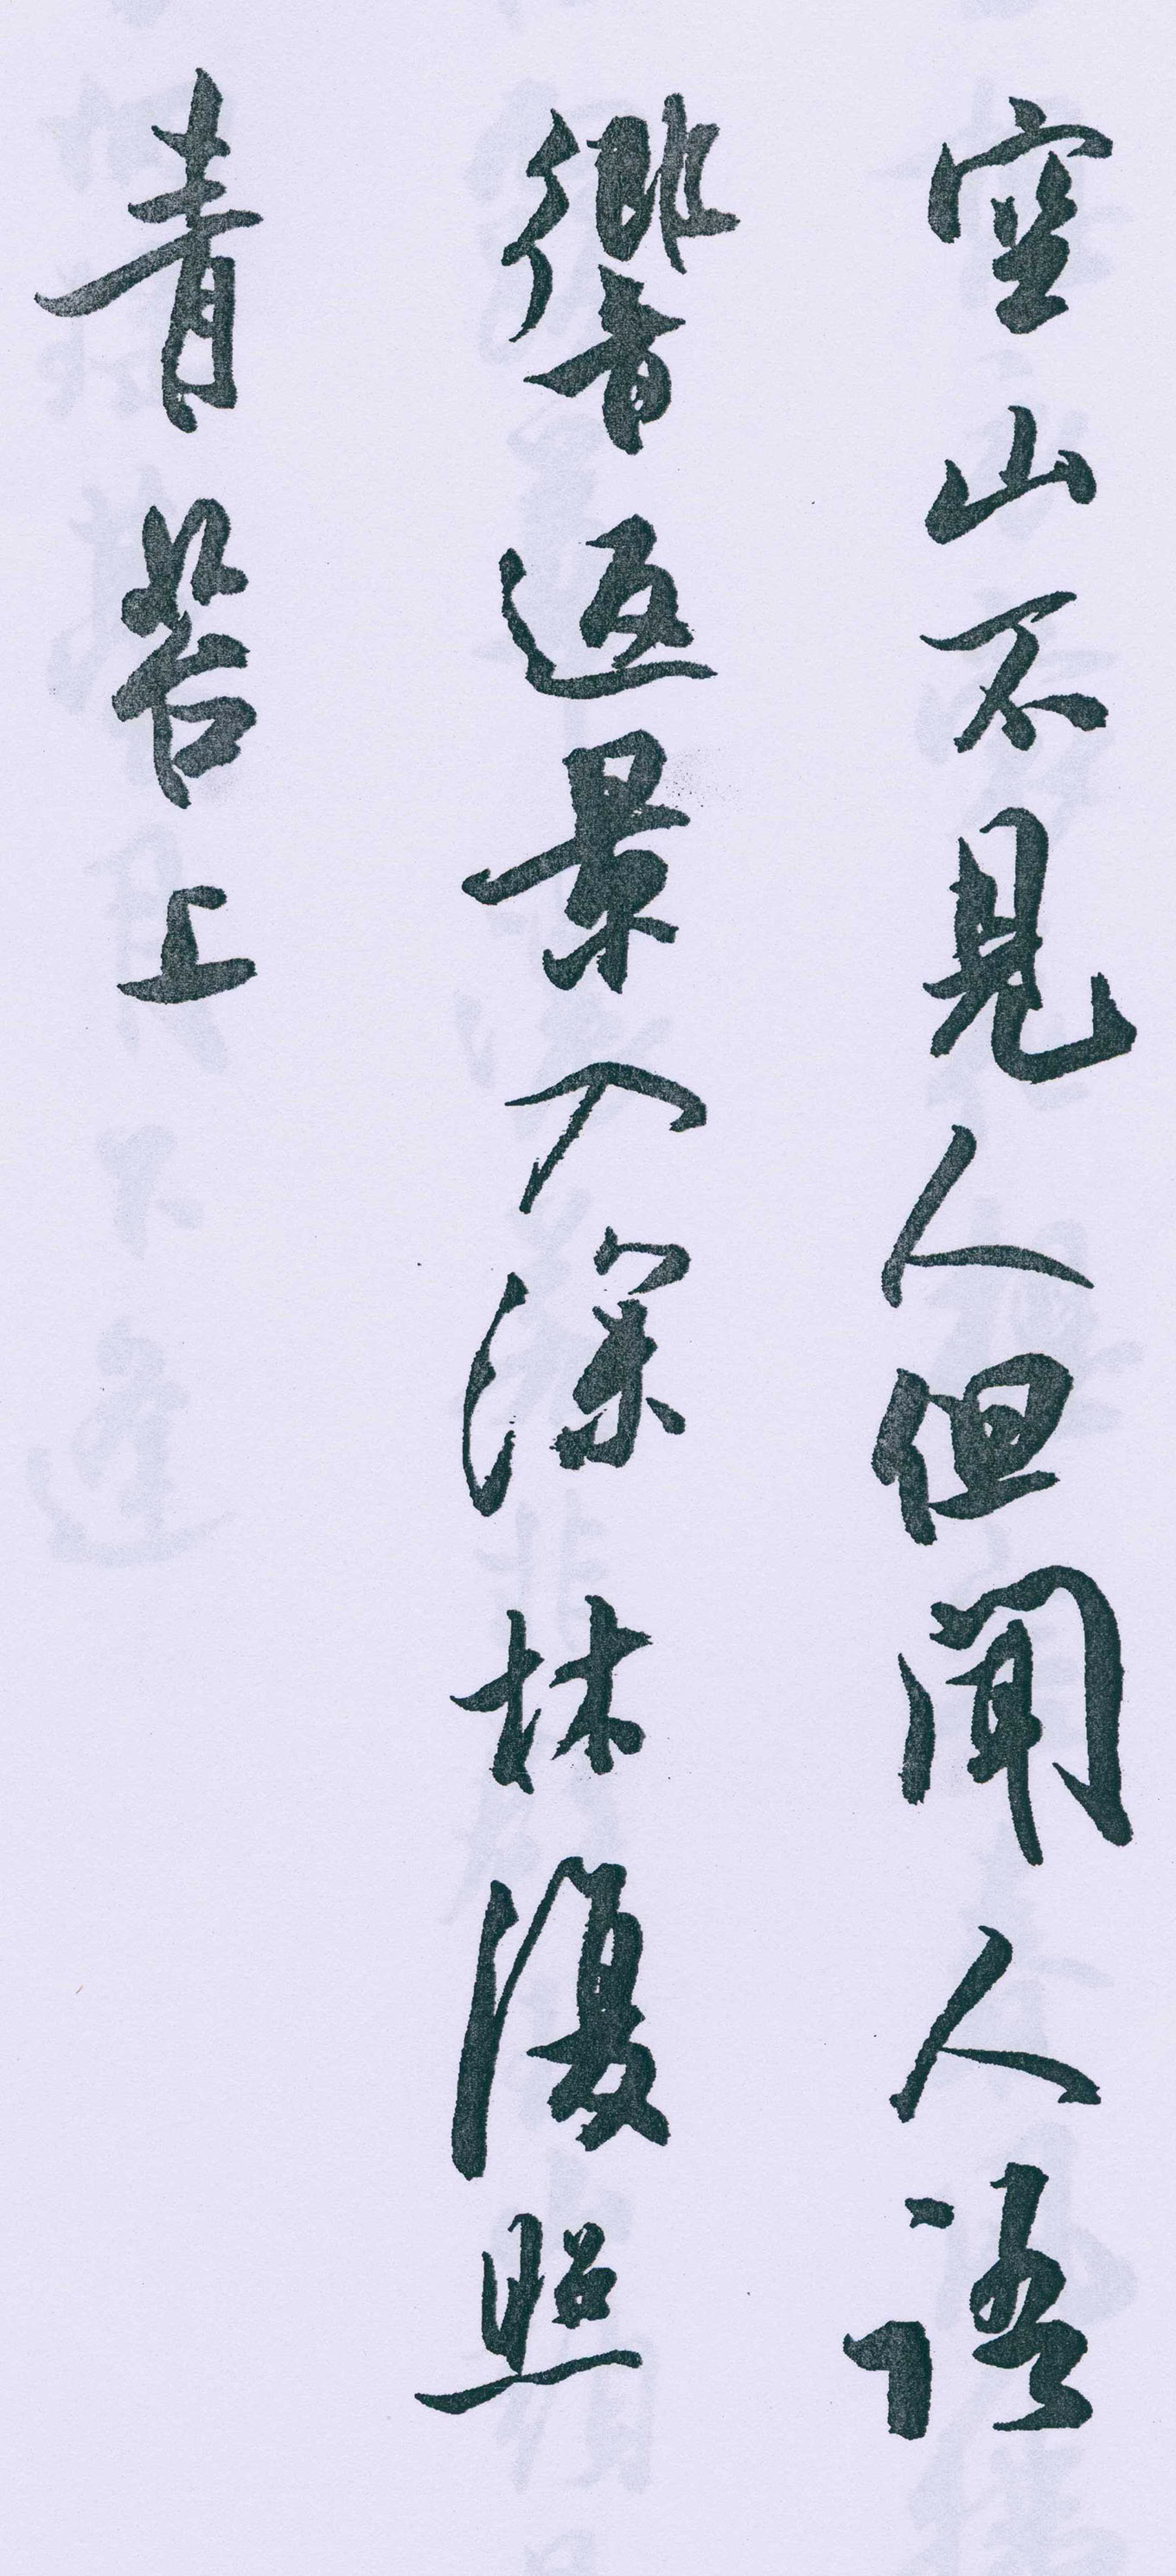 空山不見人但聞人語
響返景入深林復照
青苔上